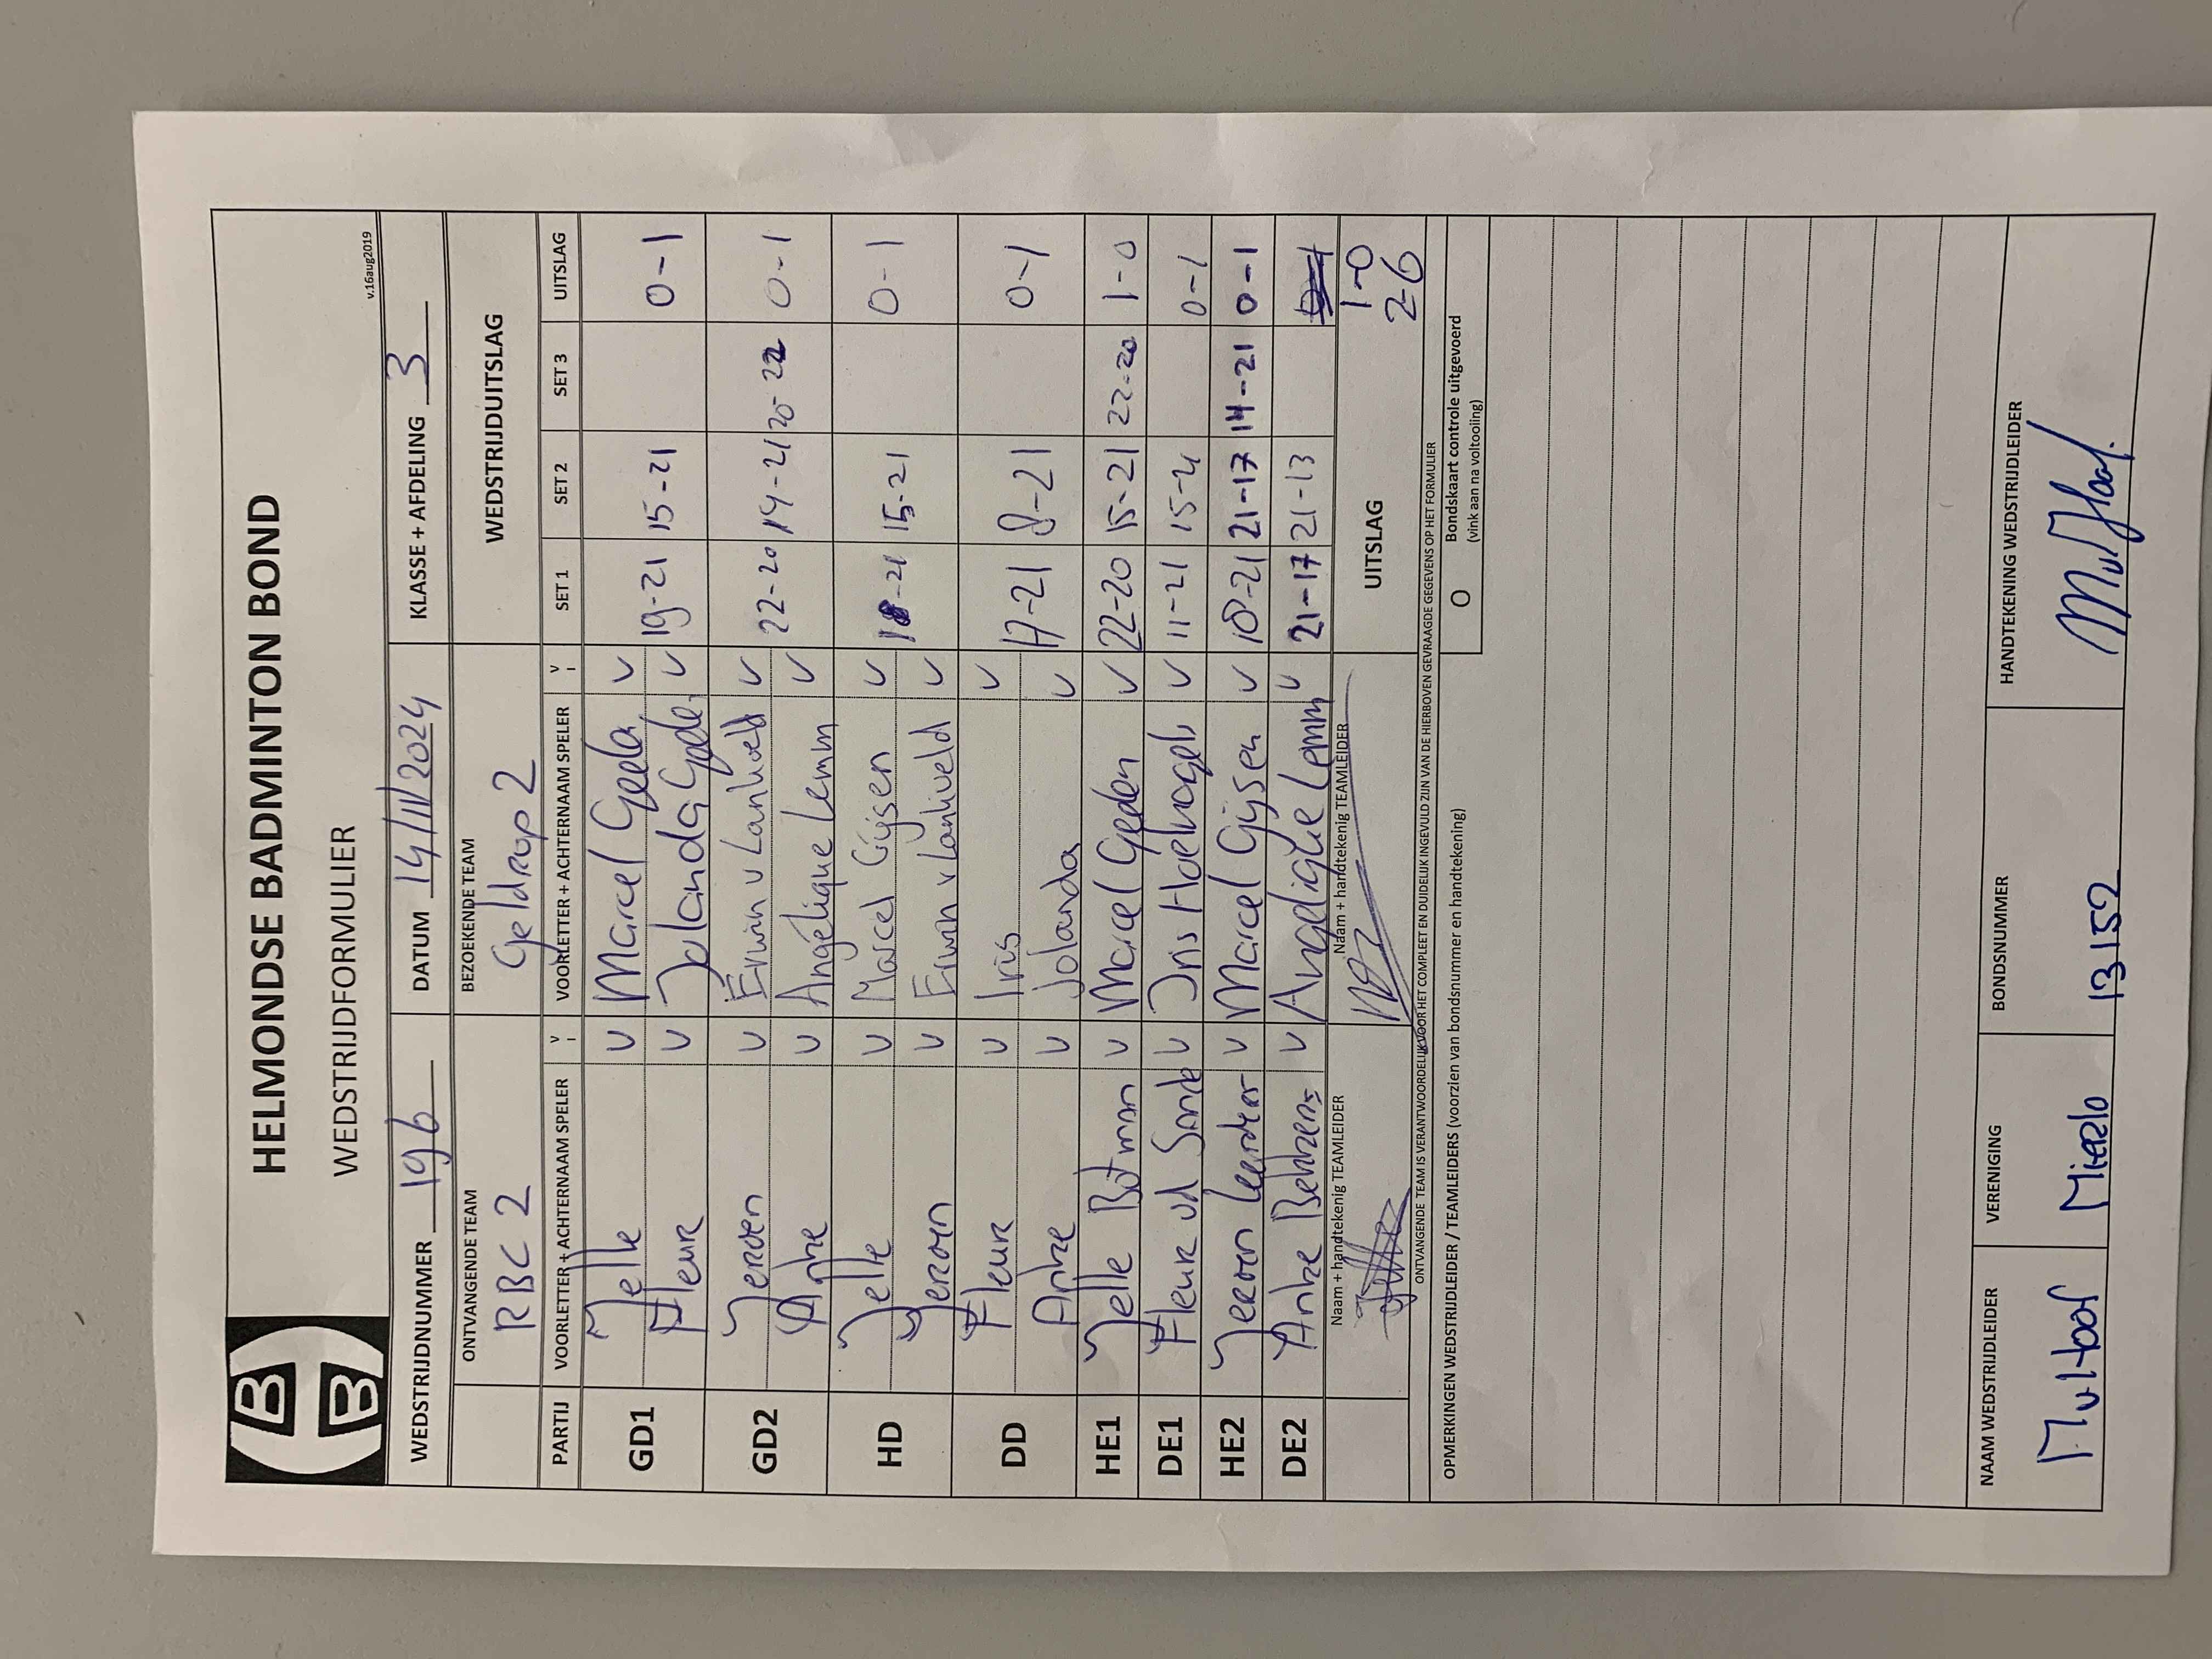 HELMONDSE BADMINTON BOND
WEDSTRIJDFORMULIER
v.16aug2019
WEDSTRIJDNUMMER 196 DATUM 14/11/2024 KLASSE + AFDELING 3
ONTVANGENDE TEAM BEZOEKENDE TEAM WEDSTRIJDUITSLAG
RBC 2 Geldrop 2
PARTIJ VOORLETTER + ACHTERNAAM SPELER V I VOORLETTER + ACHTERNAAM SPELER V I SET 1 SET 2 SET 3 UITSLAG
GD1 Jelle V Marcel V 19-21 15-21 0-1
Fleur V Jolanda V
GD2 Jeroen V Erwin v Lankveld V 22-20 14-21 20-22 0-1
Anke V Angélique Lemm V
HD Jelle V Marcel Gijsen V 18-21 15-21 0-1
Jeroen V Erwin v Lankveld V
DD Fleur V Iris V 17-21 8-21 0-1
Anke V Jolanda V
HE1 Jelle Botman V Marcel V 22-20 15-21 22-20 1-0
DE1 Fleur vd Sande V Iris V 11-21 15-21 0-1
HE2 Jeroen V Marcel Gijsen V 18-21 21-17 14-21 0-1
DE2 Anke V Angelique Lemm V 21-17 21-13
Naam + handtekenig TEAMLEIDER Naam + handtekenig TEAMLEIDER UITSLAG 1-0
2-6
ONTVANGENDE TEAM IS VERANTWOORDELIJK VOOR HET COMPLEET EN DUIDELIJK INGEVULD ZIJN VAN DE HIERBOVEN GEVRAAGDE GEGEVENS OP HET FORMULIER
OPMERKINGEN WEDSTRIJDLEIDER / TEAMLEIDERS (voorzien van bondsnummer en handtekening) O Bondskaart controle uitgevoerd
(vink aan na voltooiing)
NAAM WEDSTRIJDLEIDER VERENIGING BONDSNUMMER HANDTEKENING WEDSTRIJDLEIDER
Mierlo 13152